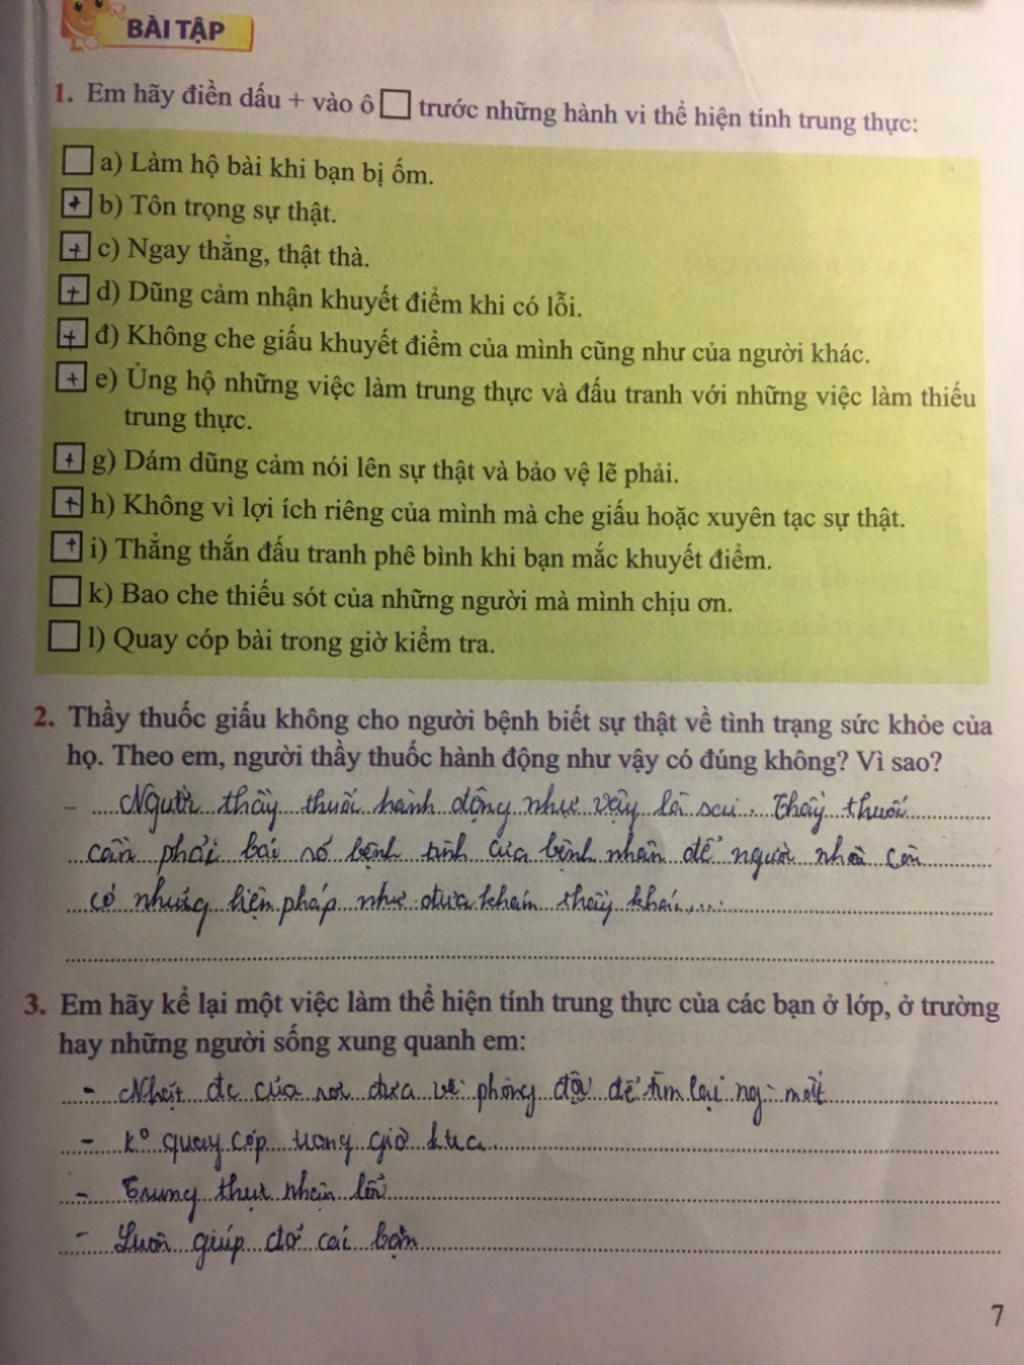 BÀI TẬP
1. Em hãy điền dấu + vào ô □ trước những hành vi thể hiện tính trung thực:
□ a) Làm hộ bài khi bạn bị ốm.
+ b) Tôn trọng sự thật.
+ c) Ngay thẳng, thật thà.
+ d) Dũng cảm nhận khuyết điểm khi có lỗi.
+ đ) Không che giấu khuyết điểm của mình cũng như của người khác.
+ e) Ủng hộ những việc làm trung thực và đấu tranh với những việc làm thiếu
trung thực.
+ g) Dám dũng cảm nói lên sự thật và bảo vệ lẽ phải.
+ h) Không vì lợi ích riêng của mình mà che giấu hoặc xuyên tạc sự thật.
+ i) Thẳng thắn đấu tranh phê bình khi bạn mắc khuyết điểm.
□ k) Bao che thiếu sót của những người mà mình chịu ơn.
□ l) Quay cóp bài trong giờ kiểm tra.
2. Thầy thuốc giấu không cho người bệnh biết sự thật về tình trạng sức khỏe của
họ. Theo em, người thầy thuốc hành động như vậy có đúng không? Vì sao?
- Người thầy thuốc hành động như vậy là sai. Thầy thuốc
cần phải báo rõ bệnh tình của bệnh nhân để người nhà còn
có những biện pháp như đưa khám thầy khác,...
3. Em hãy kể lại một việc làm thể hiện tính trung thực của các bạn ở lớp, ở trường
hay những người sống xung quanh em:
- Nhặt đc của rơi đưa về phòng đội để tìm lại ng mất
- Ko quay cóp trong giờ ktra
- Trung thực nhận lỗi
- Luôn giúp đỡ các bạn
7